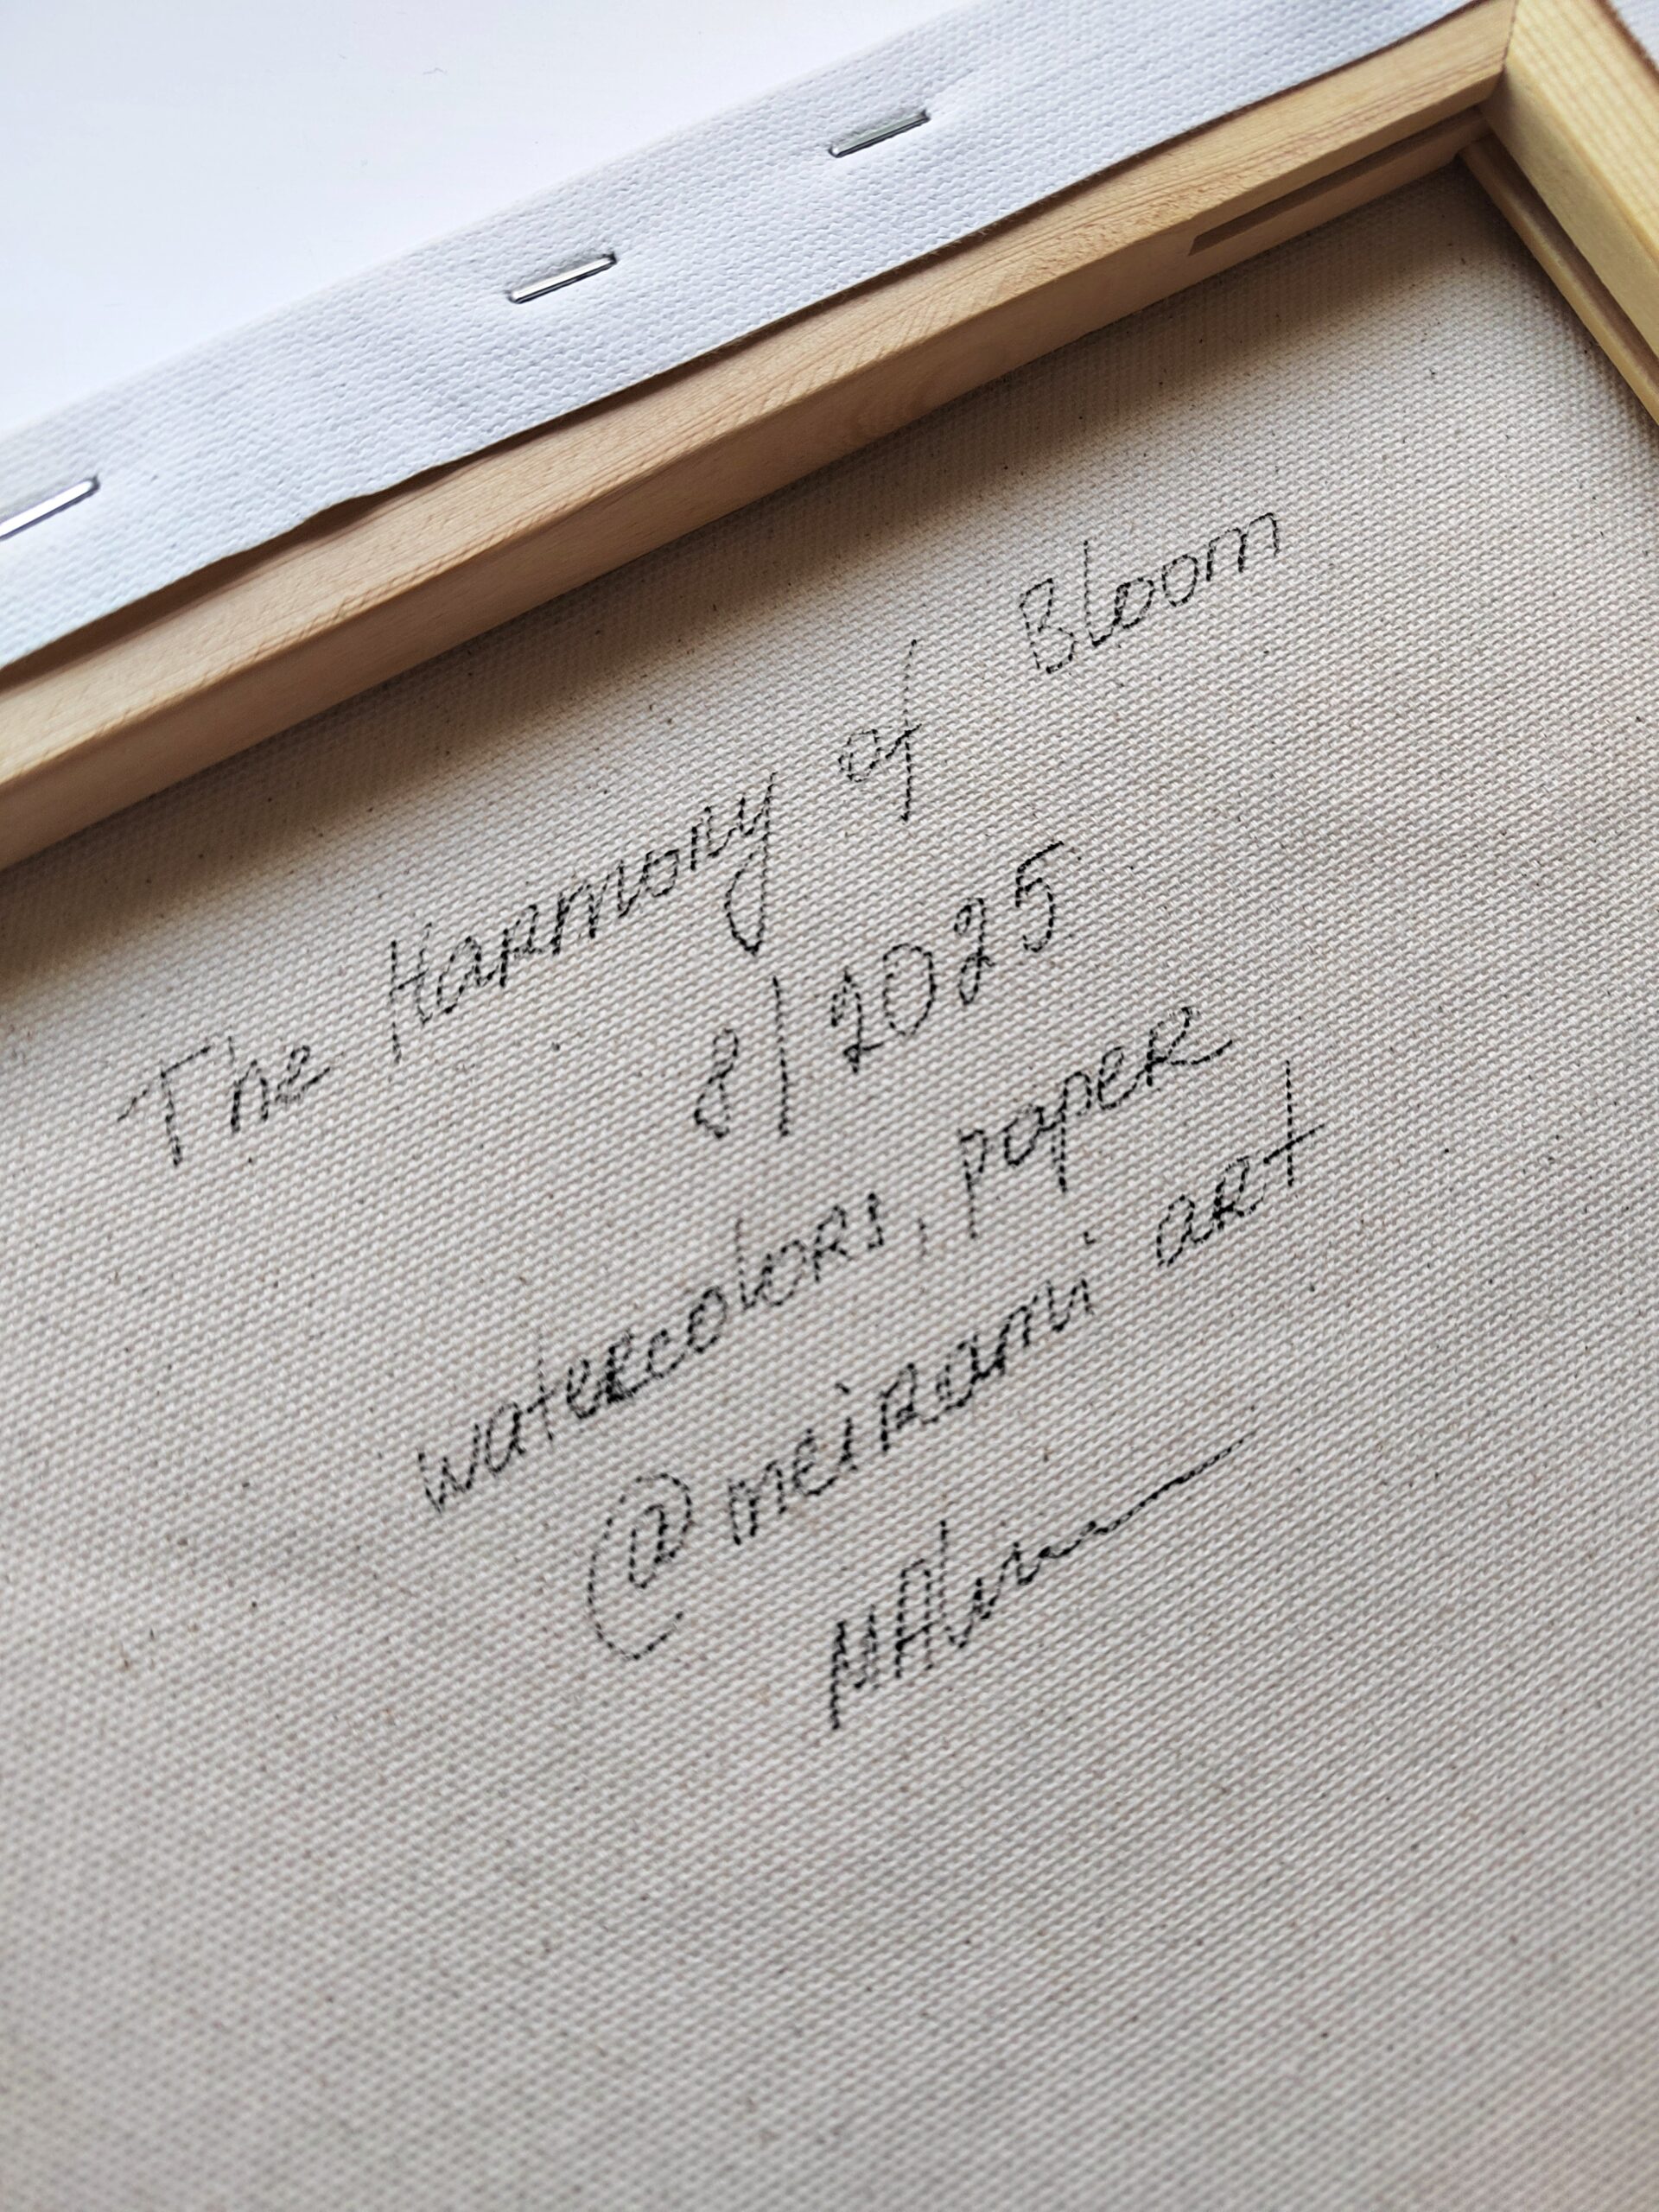 The Harmony of Bloom
8/2025
watercolors, paper
@meirami art